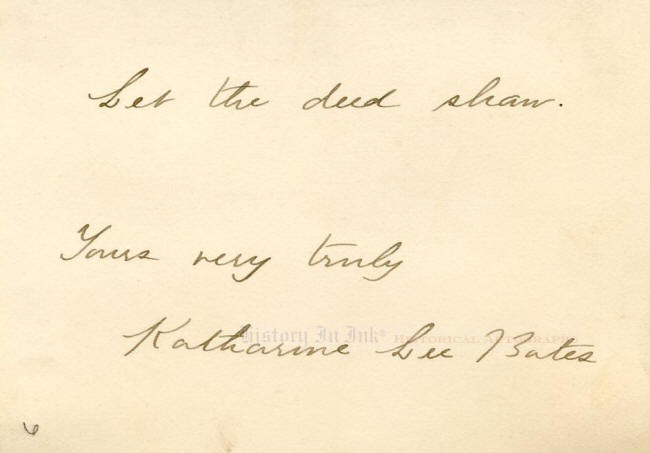 Let the deed shaw.
Yours very truly
History In Ink® HISTORICAL AUTOGRAPHS
Katharine Lee Bates
6